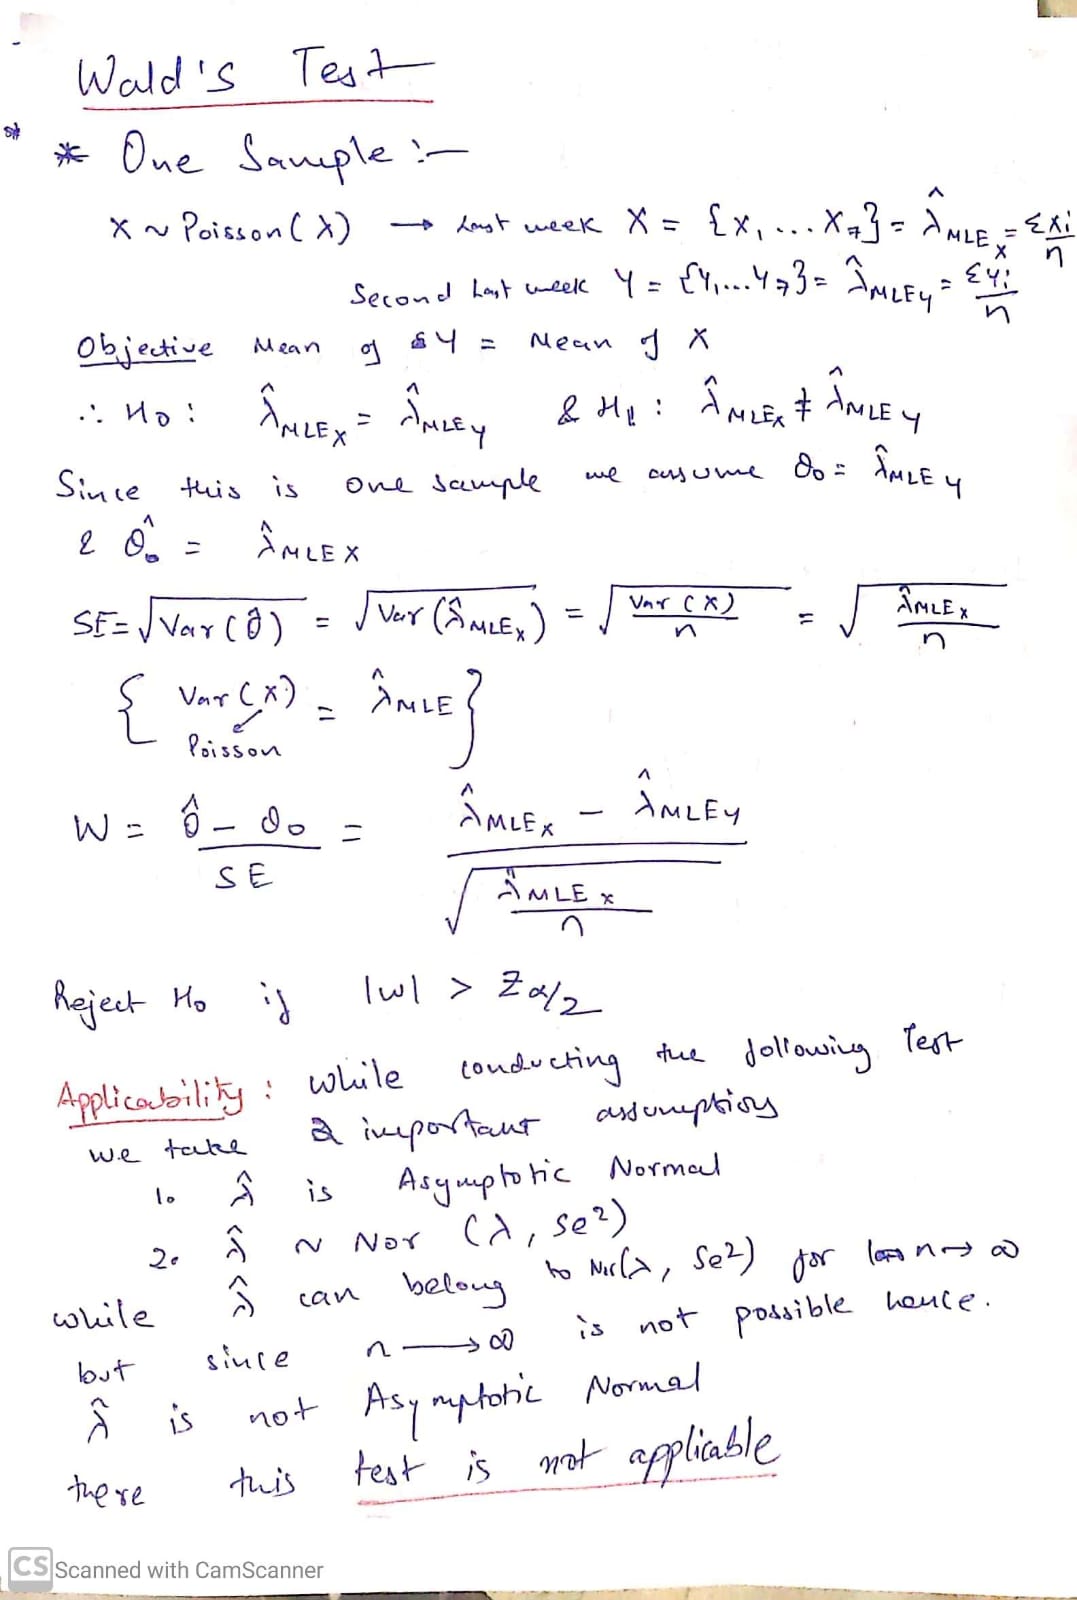 Wald's Test
* One Sample :-
X ~ Poisson(λ) → Last week X = {X1 ... X7} = λ̂MLEX = Σxi/n
Second Last week Y = {Y1...Y7} = λ̂MLEY = ΣYi/n
Objective Mean of Y = Mean of X
∴ H0 : λ̂MLEX = λ̂MLEY & H1 : λ̂MLEX ≠ λ̂MLEY
Since this is one sample we assume θ0 = λ̂MLEY
& θ̂ = λ̂MLEX
SE = √Var(θ̂) = √Var(λ̂MLEX) = √(Var(X)/n) = √(λ̂MLEX/n)
{ Var(X) = λ̂MLE }
Poisson
W = (θ̂ - θ0)/SE = (λ̂MLEX - λ̂MLEY)/√(λ̂MLEX/n)
Reject H0 if |W| > Zα/2
Applicability : while conducting the following Test
we take 2 important assumptions
1. λ̂ is Asymptotic Normal
2. λ̂ ~ Nor (λ, se²)
while λ̂ can belong to Nor(λ, se²) for n→∞
but since n → ∞ is not possible hence.
λ̂ is not Asymptotic Normal
there this test is not applicable
CS Scanned with CamScanner